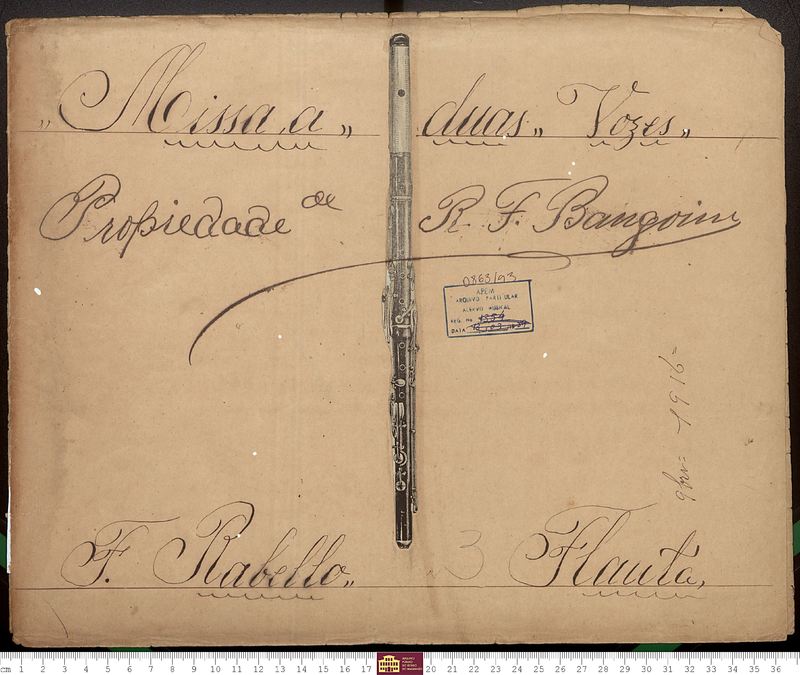 „ Missa a „ duas „ Vozes „
Propiedade de R. F. Bangoim
0863/93
APEM
ARQUIVO PARTICULAR
ACERVO MUSICAL
REG. No
DATA
1916
F. Rabello „ 3 Flauta,
cm 1 2 3 4 5 6 7 8 9 10 11 12 13 14 15 16 17 20 21 22 23 24 25 26 27 28 29 30 31 32 33 34 35 36